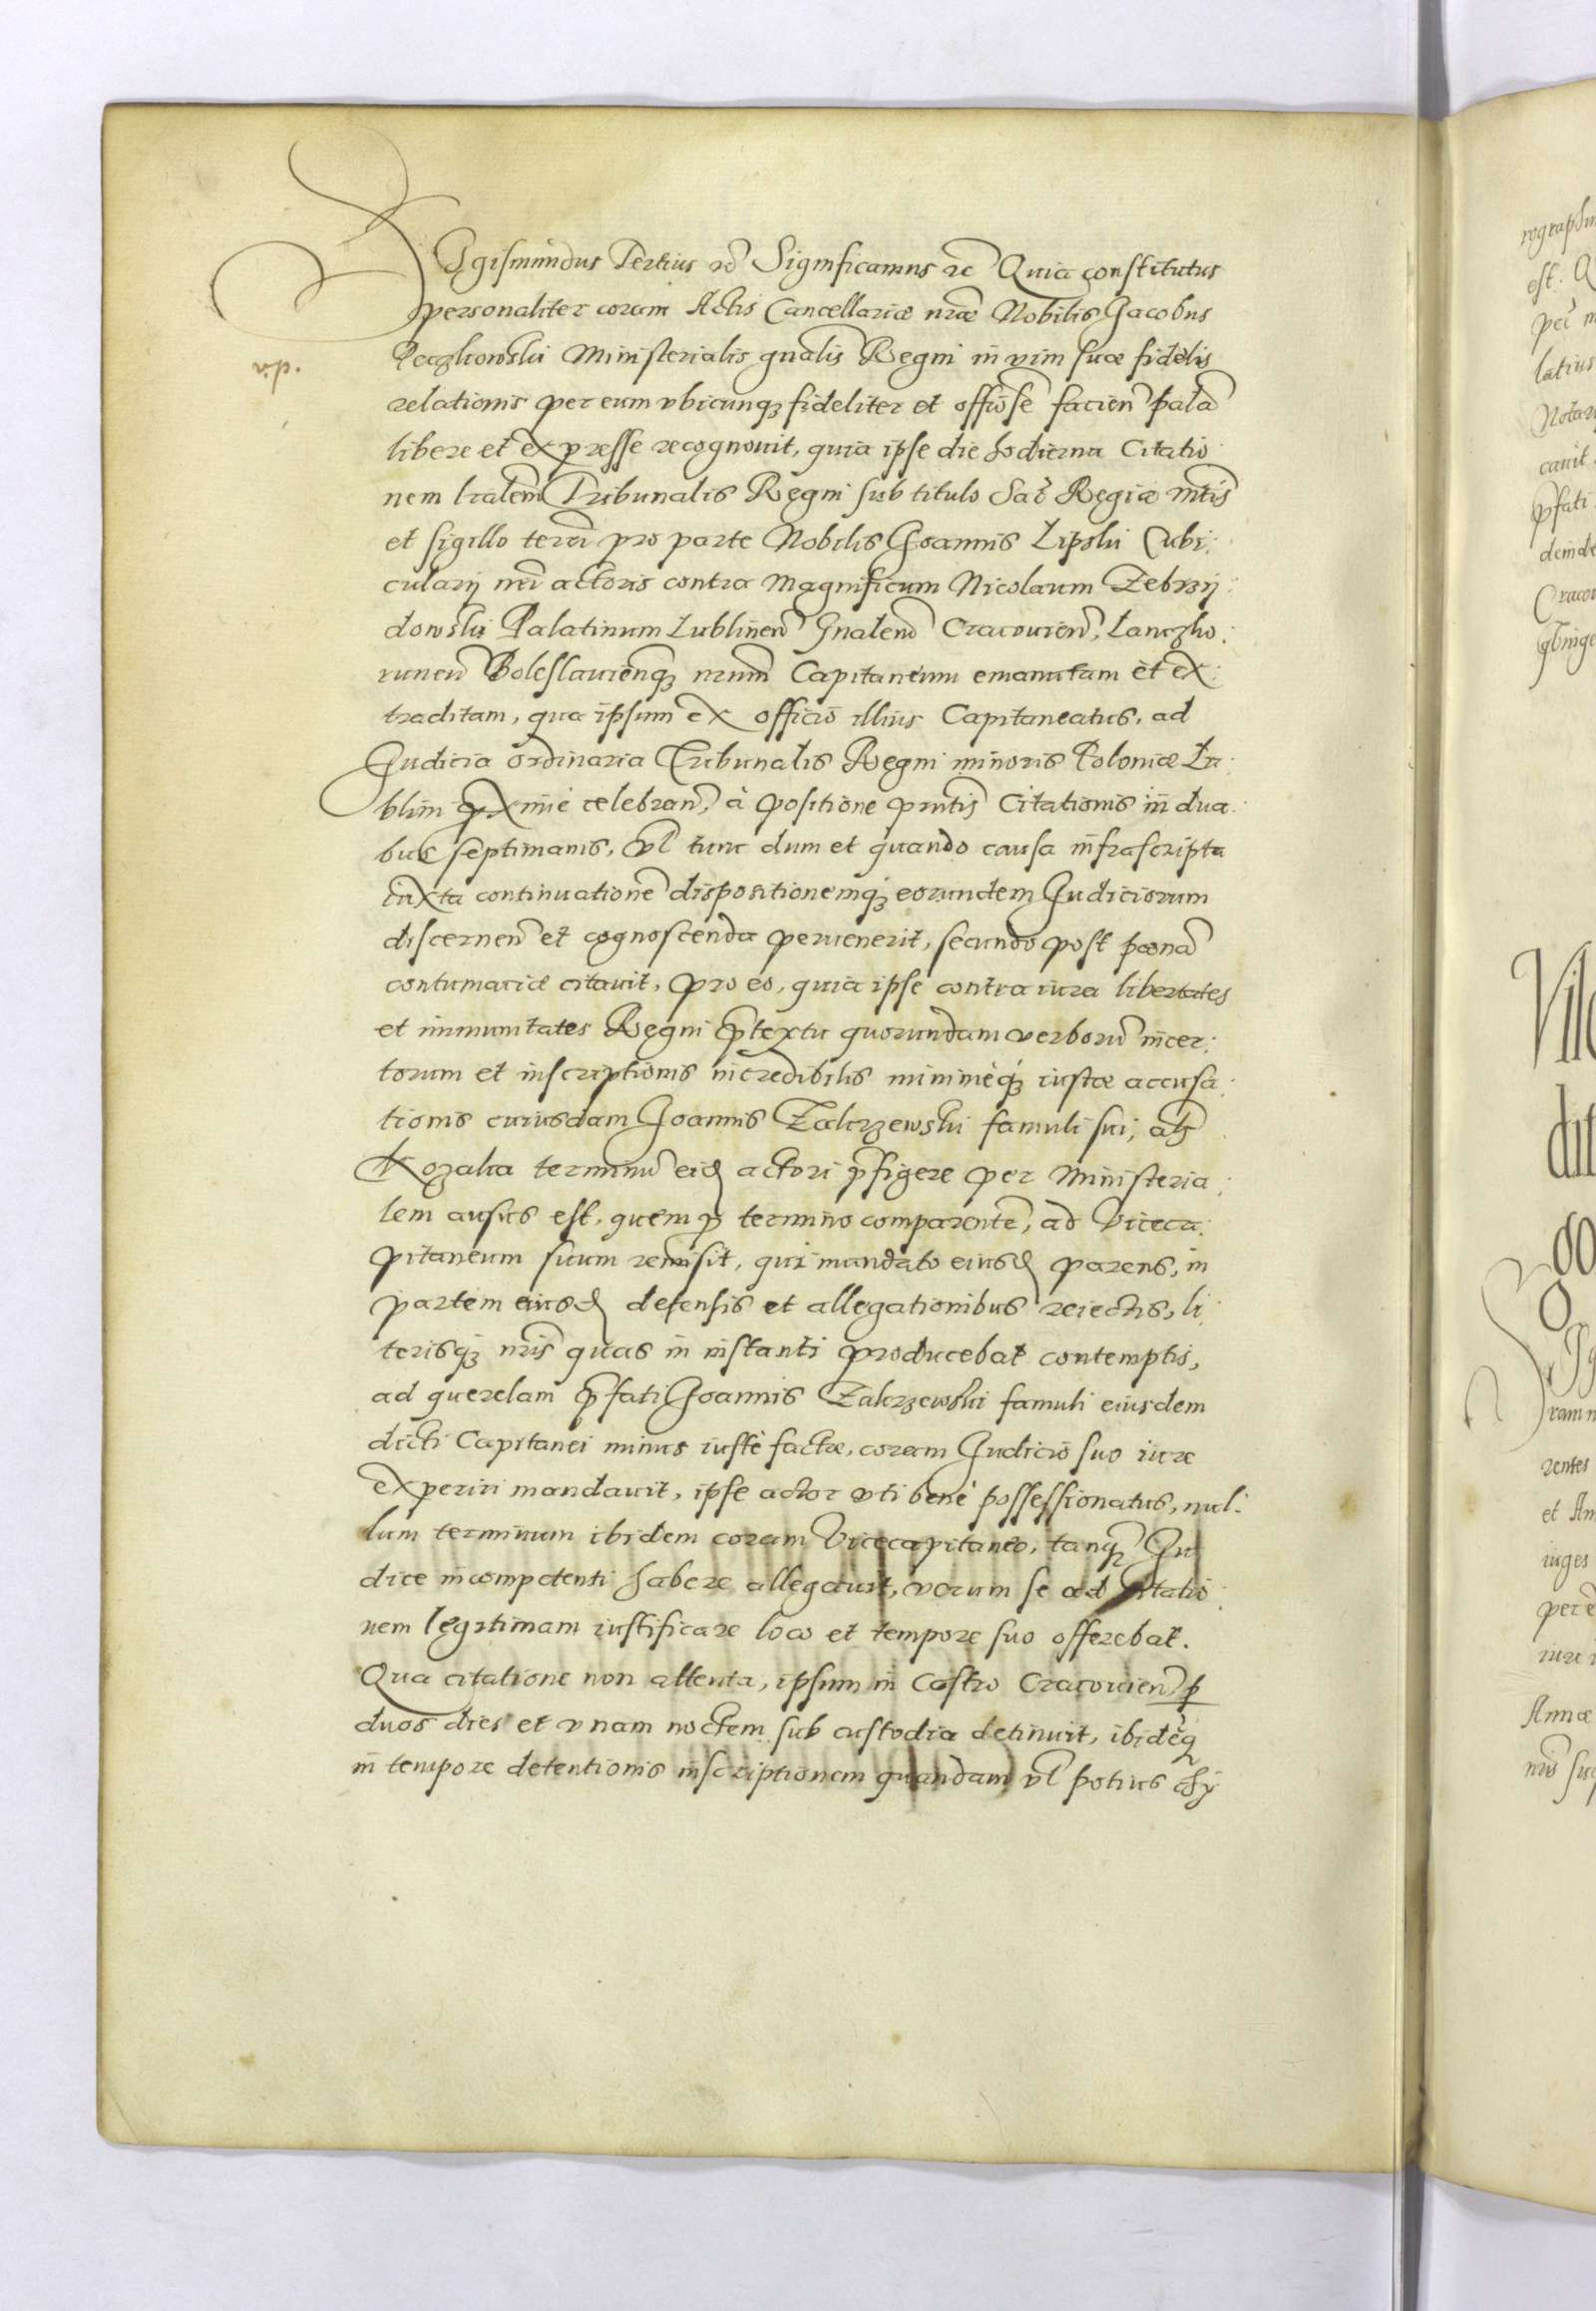 Sigismundus Tertius etc Significamus etc Quia constitutus
personaliter coram Actis Cancellariæ nræ Nobilis Jacobus
Ministerialis gnalis Regni in vim suæ fidelis
relationis per eum vbicunqȝ fideliter et offiose facien palã
libere et expresse recognouit, quia ipse die hodierna Citatio
nem lralem Tribunalis Regni sub titulo Sac Regiæ mtis
et sigillo terræ pro parte Nobilis Joannis Lipski Cubi:
cularij nri actoris contra Magnificum Nicolaum Zebrzij:
dowski Palatinum Lublinen Gnalem Cracouien, Lanczko:
runen Boleslauienqȝ nrum Capitaneum emanatam et ex:
traditam, qua ipsum ex officio illius Capitaneatus, ad
Judicia ordinaria Tribunalis Regni minoris Poloniæ Lu:
blini pxime celebran, à positione pntis Citationis in dua:
bus septimanis, vl tunc dum et quando causa infrascripta
iuxta continuationẽ dispositionemqȝ eorundem Judiciorum
discernen et cognoscenda peruenerit, secundo post pœnã
contumaciæ citauit, pro eo, quia ipse contra iura libertates
et immunitates Regni ptextu quorundam verborũ incer:
torum et inscriptionis incredibilis minimèqȝ iustæ accusa:
tionis cuiusdam Joannis Zakrzewski famuli sui, abs
Kozaka terminũ eid actori pfigere per Ministeria:
lem ausus est, quem p termino comparentẽ, ad Viceca:
pitaneum suum remisit, qui mandato eiusd parens, in
partem eiusd defensis et allegationibus reiectis, li:
terisqȝ nris quas in instanti producebat contemptis,
ad querelam pfati Joannis Zakrzewski famuli eiusdem
dicti Capitanei minus iustè factæ, coram Judicio suo iure
experiri mandauit, ipse actor vti benè possessionatus, nul:
lum terminum ibidem coram Vicecapitaneo, tanq Ju
dice incompetenti habere allegauit, verum se ad citatio:
nem legitimam iustificare loco et tempore suo offerebat.
Qua citatione non attenta, ipsum in Castro Cracouien p
duos dies et vnam noctem sub custodia detinuit, ibideqȝ
in tempore detentionis inscriptionem quandam vl potius chy